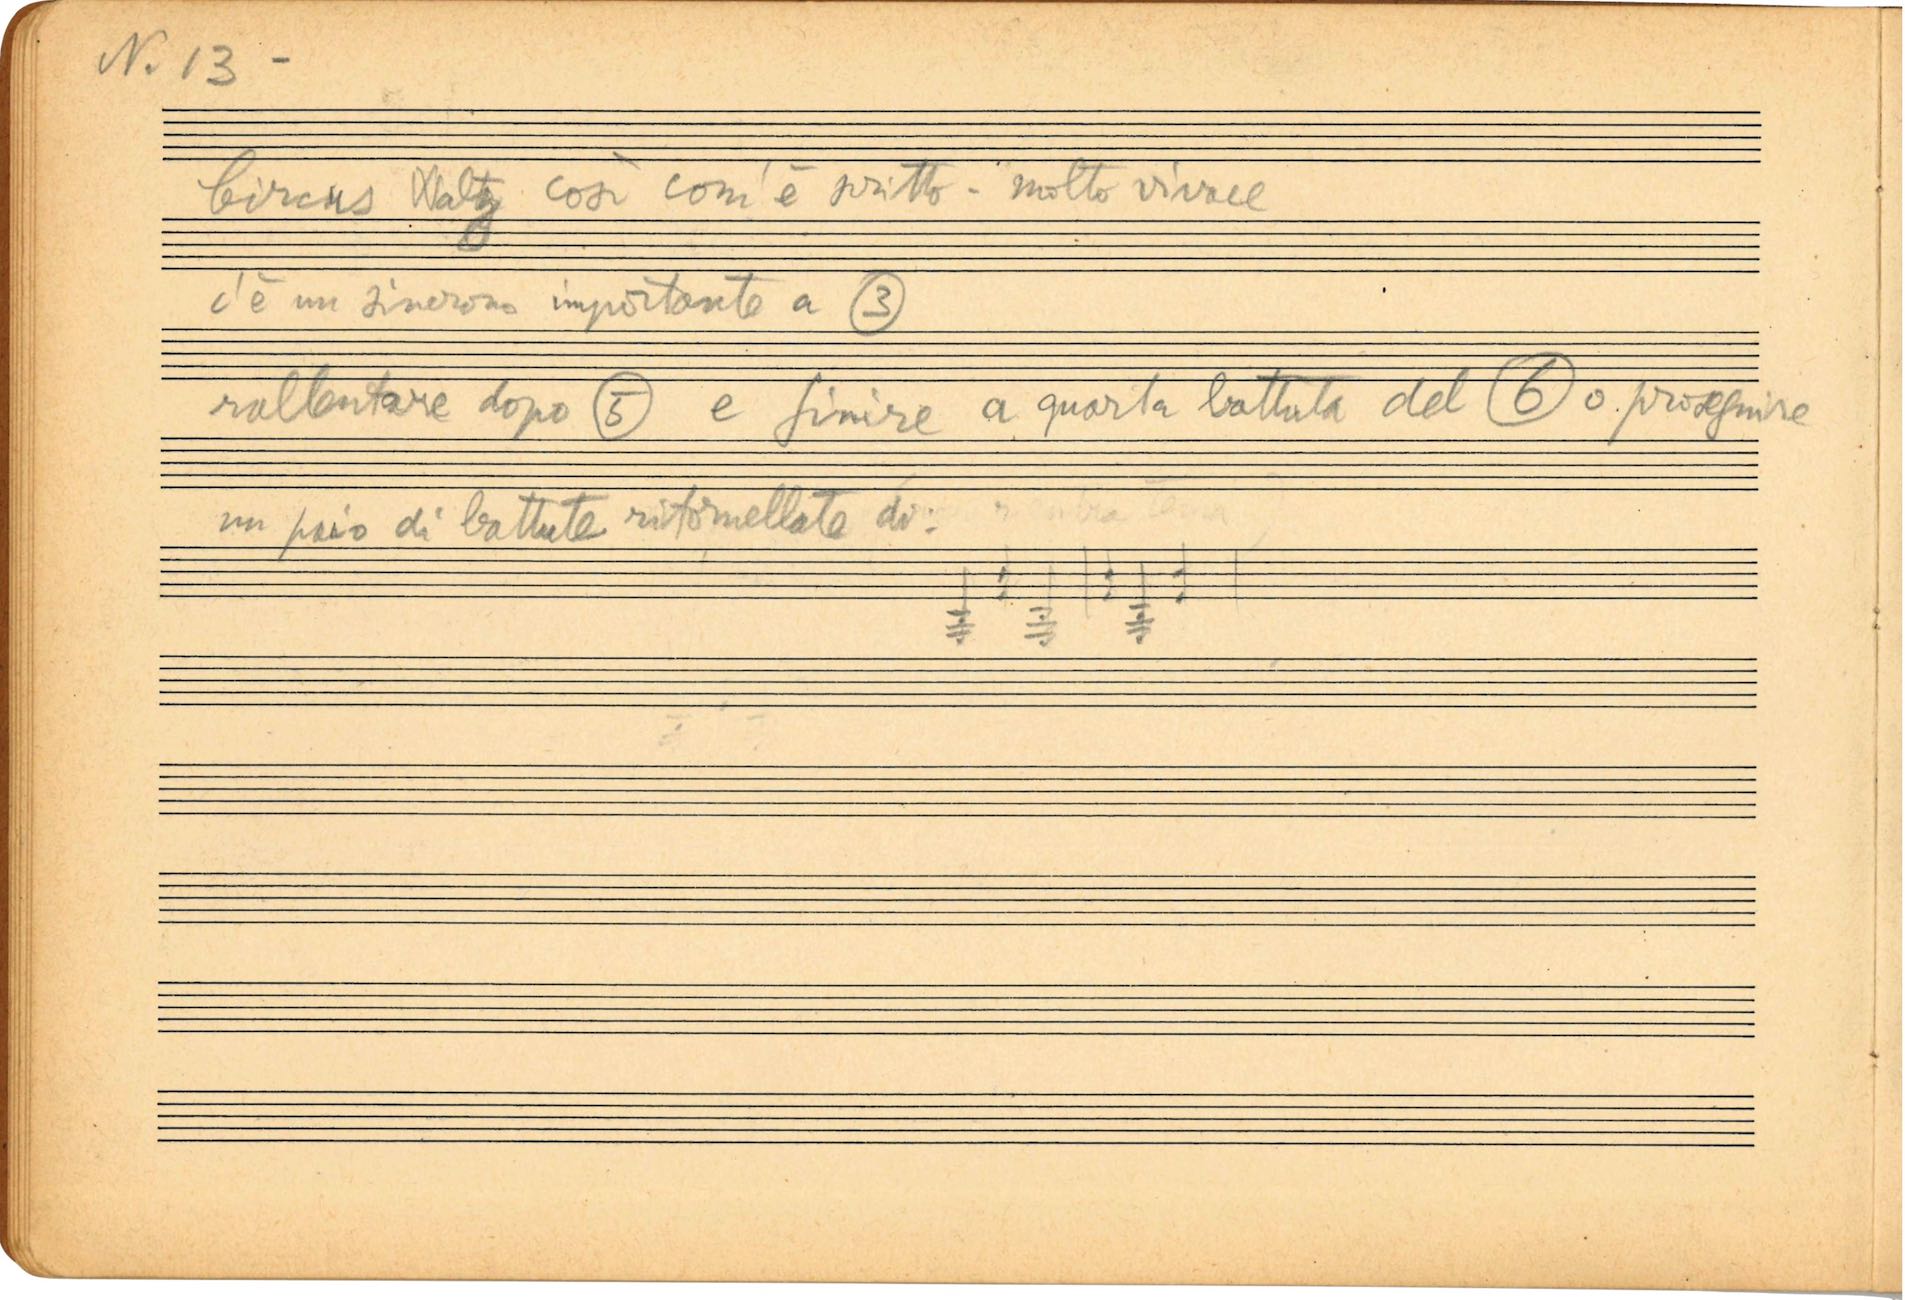 N. 13 -
Circus Waltz così com'è scritto - molto vivace
c'è un sincrono importante a 3
rallentare dopo 5 e finire a quarta battuta del 6 o proseguire
un paio di battute ritornellate di: